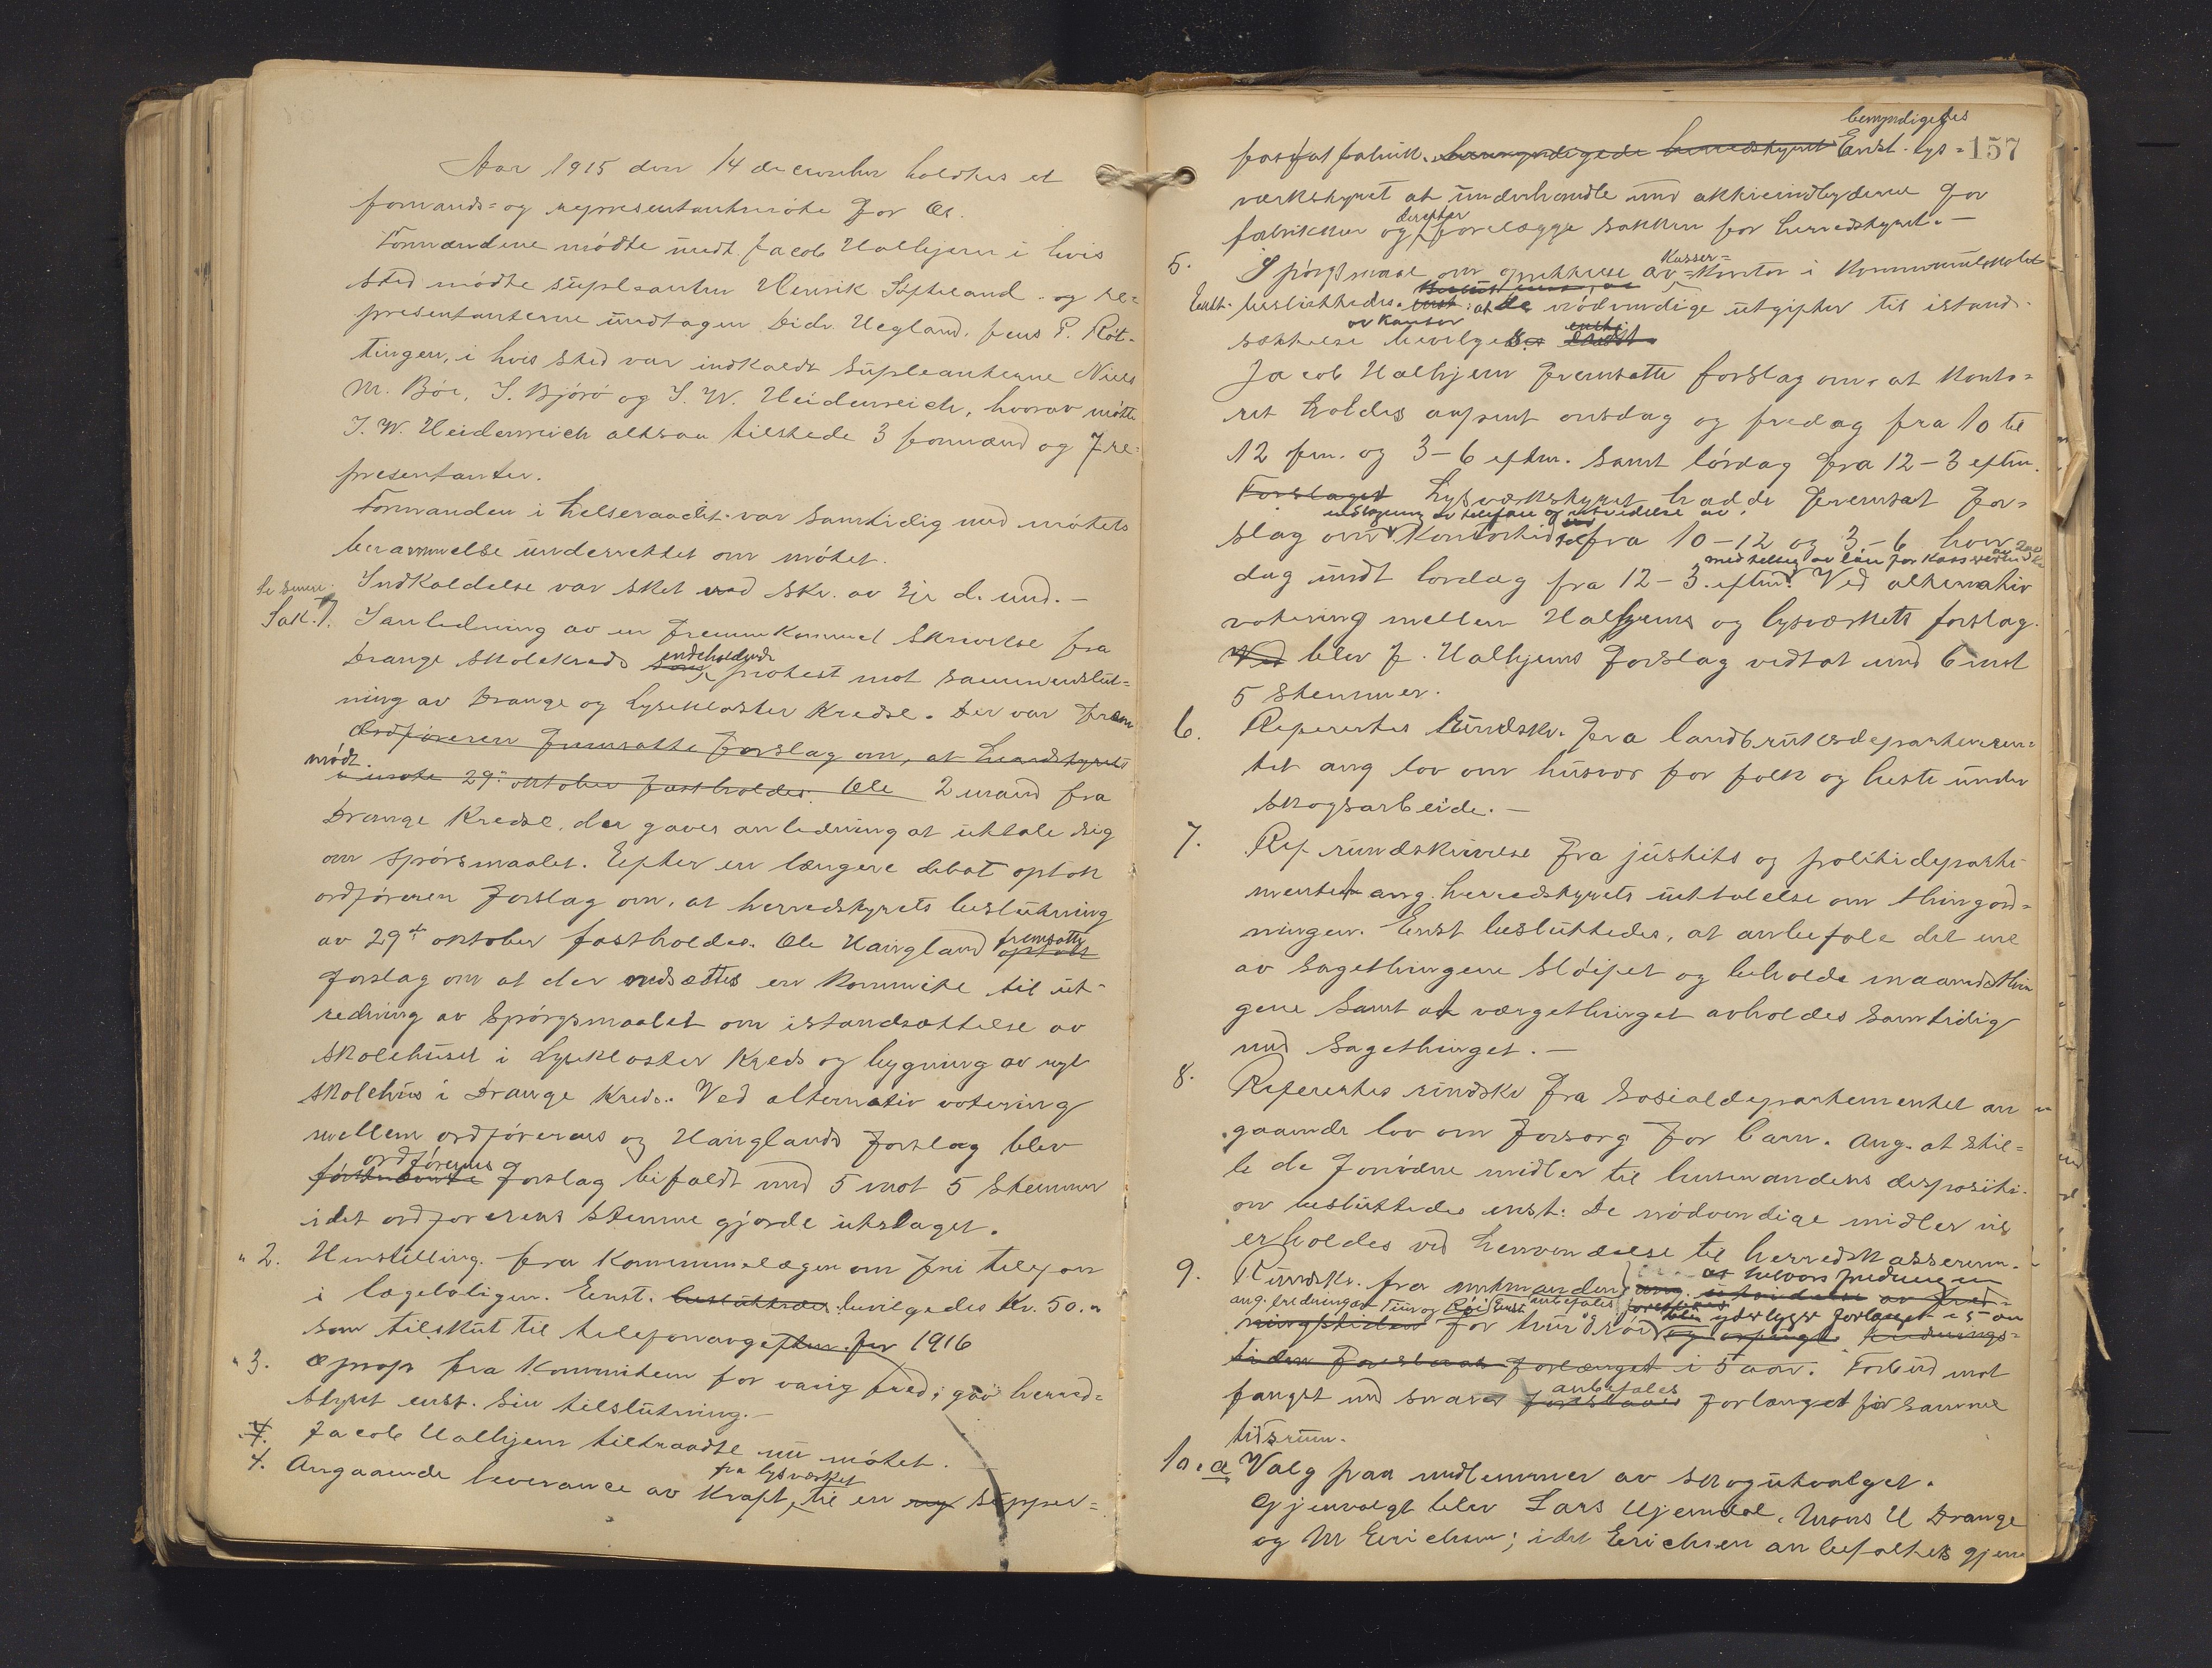 Aar 1915 den 14 december holdtes et
formands- og representantmöte for Os.
Formændene mödte undt. Jacob Halhjem i hvis
sted mödte supleanten Henrik Söfteland - og re-
presentanterne undtagen Didr. Hegland. Jens P. Röt-
tingen, i hvis sted var indkaldt supleanterne Niels
M. Böe, I. Björö og I. W. Heidenreich, hvorav mötte
I. W. Heidenreich altsaa tilstede 3 formænd og 7 re-
presentanter.
Formanden i helseraadet var samtidig med mötets
berammelse underrettet om mötet.
Indkaldelse var sket ved skr. av 3je d. md. -
Sak. 1. I anledning av en fremmkommet skrivelse fra
Drange skolekreds som indeholdende protest mot sammenslut-
ning av Drange og Lysekloster kredse. Der var frem
mödt. Ordföreren fremsatte forslag om, at herredstyrets
i möte 29de oktober fastholdes. Ole 2 mand fra
Drange kreds, der gaves anledning at uttale sig
om spörsmaalet. Eefter en længere debat optok
ordföreren forslag om, at herredstyrets beslutning
av 29de oktober fastholdes. Ole Haugland optok fremsatte
forslag om at der nedsættes en kommite til ut-
redning av spörgsmaalet om istandsættelse av
skolehuset i Lysekloster kreds og bygning av nyt
skolehus i Drange kreds. Ved alternativ votering
mellem ordförerens og Hauglands forslag blev
förstnævnte ordförerens forslag bifaldt med 5 mot 5 stemmer
idet ordförerens stemme gjorde utslaget.
" 2. Henstilling fra kommunelægen om fri telefon
i lægeboligen. Enst. besluttedes bevilgedes kr. 50.-
som tilskut til telefonavgiften for 1916
" 3. Oprop fra kommiteen for varig fred; gav herred-
styret enst. sin tilslutning. -
4. Jacob Halhjem tiltraadte nu mötet.
4. Angaaende leverance av kraft fra lysværket til en ny supper-
157
fosfatfabrik. bemyndigede herredstyret Enst. bemyndigedes lys-
værkstyret at underhandle med aktieindbyderne for
fabrikken og derefter forelægge sakken for herredstyret. -
5. Spörgsmaal om oprettelse av Kasser- kontor i Kommunelokalet
Enst. besluttedes. enst: at de nödvendige utgifter til istand-
sættelse av kontor bevilgedes enst.
Jacob Halhjem fremsatte forslag om, at konto-
ret holdes aapent onsdag og fredag fra 10 til
12 fm. og 3-6 eftm. samt lördag fra 12-3 eftm.
Forslaget Lysværkstyret hadde fremsat for-
slag om indlægning av telefon og utvidelse av kontortid til fra 10-12 og 3-6 hver
dag undt lördag fra 12-3 eftm. med tillæg av lön for kassereren av 200 kr Ved alternativ
votering mellem Halhjems og lysværkets forslag
Ved blev J. Halhjems forslag vedtat med 6 mot
5 stemmer.
6. Refereertes rundskr. fra landbruksdepartemen-
tet ang lov om husvær for folk og heste under
skogsarbeide. -
7. Ref rundskrivelse fra justits og politideparte-
mentet ang. herredstyrets uttalelse om thingord-
ningen. Enst besluttedes, at anbefale det ene
av sagethingene slöifet og beholde maanedsthin
gene samt at værgethinget avholdes samtidig
med sagethinget. -
8. Refereertes rundskr fra Sosialdepartementet an
gaaende lov om forsorg for barn. Ang. at stil-
le de fornödne midler til lensmandens disposisi-
on besluttedes enst: De nödvendige midler vil
erholdes ved henvendelse til herredskassereren.
9. Rundskr. fra amtmanden ang. utvidelse av fred-
ang. fredning av tiur og röi Enst anbefales
ningstiden for tiur og röi blir yderligere forlænget i 5 aar
tiden foreslaaes forlænget i 5 aar. Forbud mot
fangst med snarer foreslaaes anbefales forlænget for samme
tidsrum.
10. a Valg paa medlemmer av skogutvalget.
Gjenvalgt blev Lars Hjemdal, Mons H Drange
og M Erichsen; idet Erichsen anbefaltes gjen